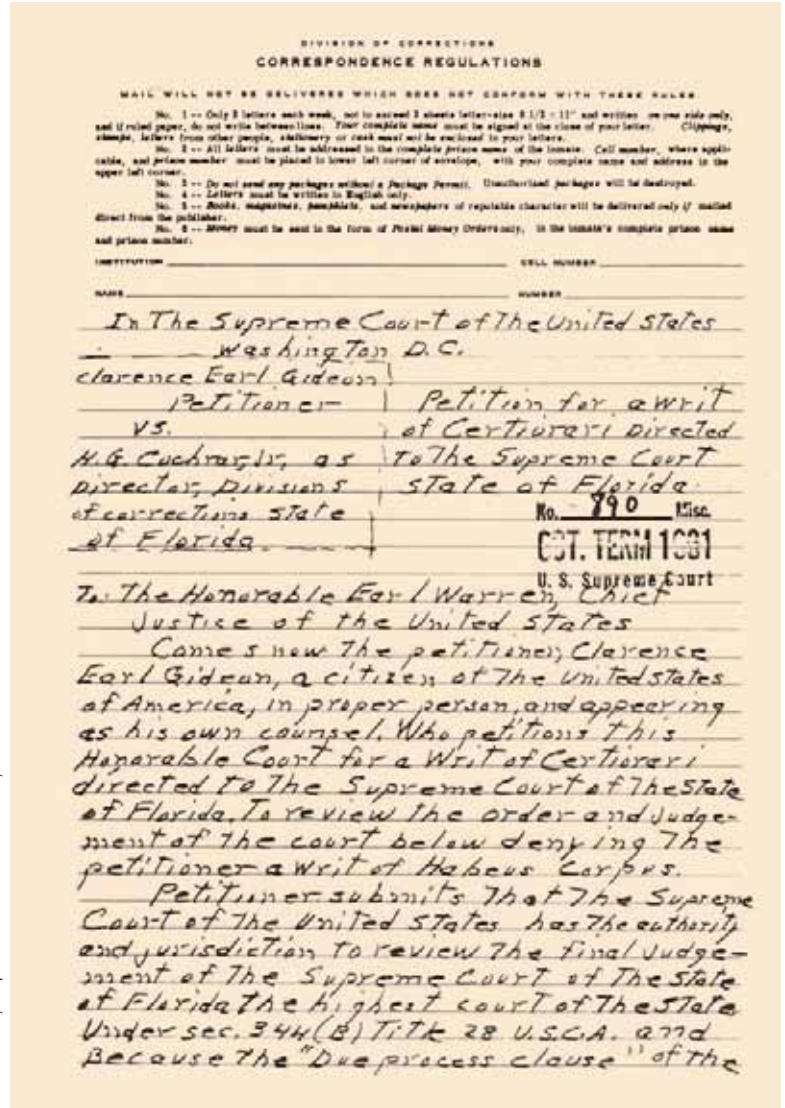 DIVISION OF CORRECTIONS
CORRESPONDENCE REGULATIONS
MAIL WILL NOT BE DELIVERED WHICH DOES NOT CONFORM WITH THESE RULES
No. 1 -- Only 2 letters each week, not to exceed 2 sheets letter-size 8 1/2 x 11" and written on one side only,
and if ruled paper, do not write between lines. Your complete name must be signed at the close of your letter. Clippings,
stamps, letters from other people, stationery or cash must not be enclosed in your letters.
No. 2 -- All letters must be addressed in the complete prison name of the inmate. Cell number, where appli-
cable, and prison number must be placed in lower left corner of envelope, with your complete name and address in the
upper left corner.
No. 3 -- Do not send any packages without a Package Permit. Unauthorized packages will be destroyed.
No. 4 -- Letters must be written in English only.
No. 5 -- Books, magazines, pamphlets, and newspapers of reputable character will be delivered only if mailed
direct from the publisher.
No. 6 -- Money must be sent in the form of Postal Money Orders only, in the inmate's complete prison name
and prison number.
INSTITUTION CELL NUMBER
NAME NUMBER
In The Supreme Court of The United States
Washington D.C.
clarence Earl Gideon
Petitioner
vs.
H.G. Cochran, Jr, as
Director, Divisions
of corrections State
of Florida
Petition for a writ
of Certiorari Directed
To The Supreme Court
State of Florida.
No. 890 Misc.
OCT. TERM 1961
U. S. Supreme Court
To: The Honorable Earl Warren, Chief
Justice of the United States
Comes now The petitioner, Clarence
Earl Gideon, a citizen of The United states
of America, in proper person, and appearing
as his own counsel. Who petitions this
Honorable Court for a Writ of Certiorari
directed to The Supreme Court of The State
of Florida, To review the order and Judge-
ment of the court below denying The
petitioner a writ of Habeus Corpus.
Petitioner submits That The Supreme
Court of The United States has The authority
and jurisdiction to review the final Judge-
ment of The Supreme Court of The State
of Florida the highest court of The State
Under sec. 344(B) Title 28 U.S.C.A. and
Because The "Due process clause" of the